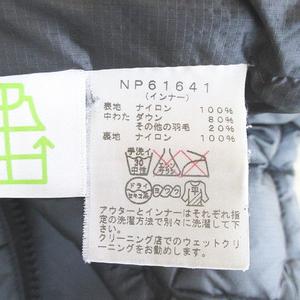 NP61641
(インナー)
表地 ナイロン 100%
中わた ダウン 80%
その他の羽毛 20%
裏地 ナイロン 100%
手洗イ
30
中性
エンソサラシ
ドライ
セキユ系
ヨワク
アウターとインナーはそれぞれ指
定の洗濯方法で別々に洗濯して下
さい。
クリーニング店でのウェットクリ
ーニングをお勧めします。